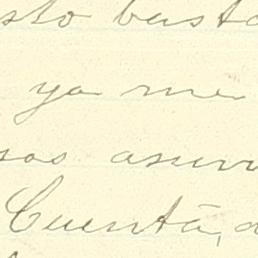 sto basta
ya me
sos asun
Cuenta, d